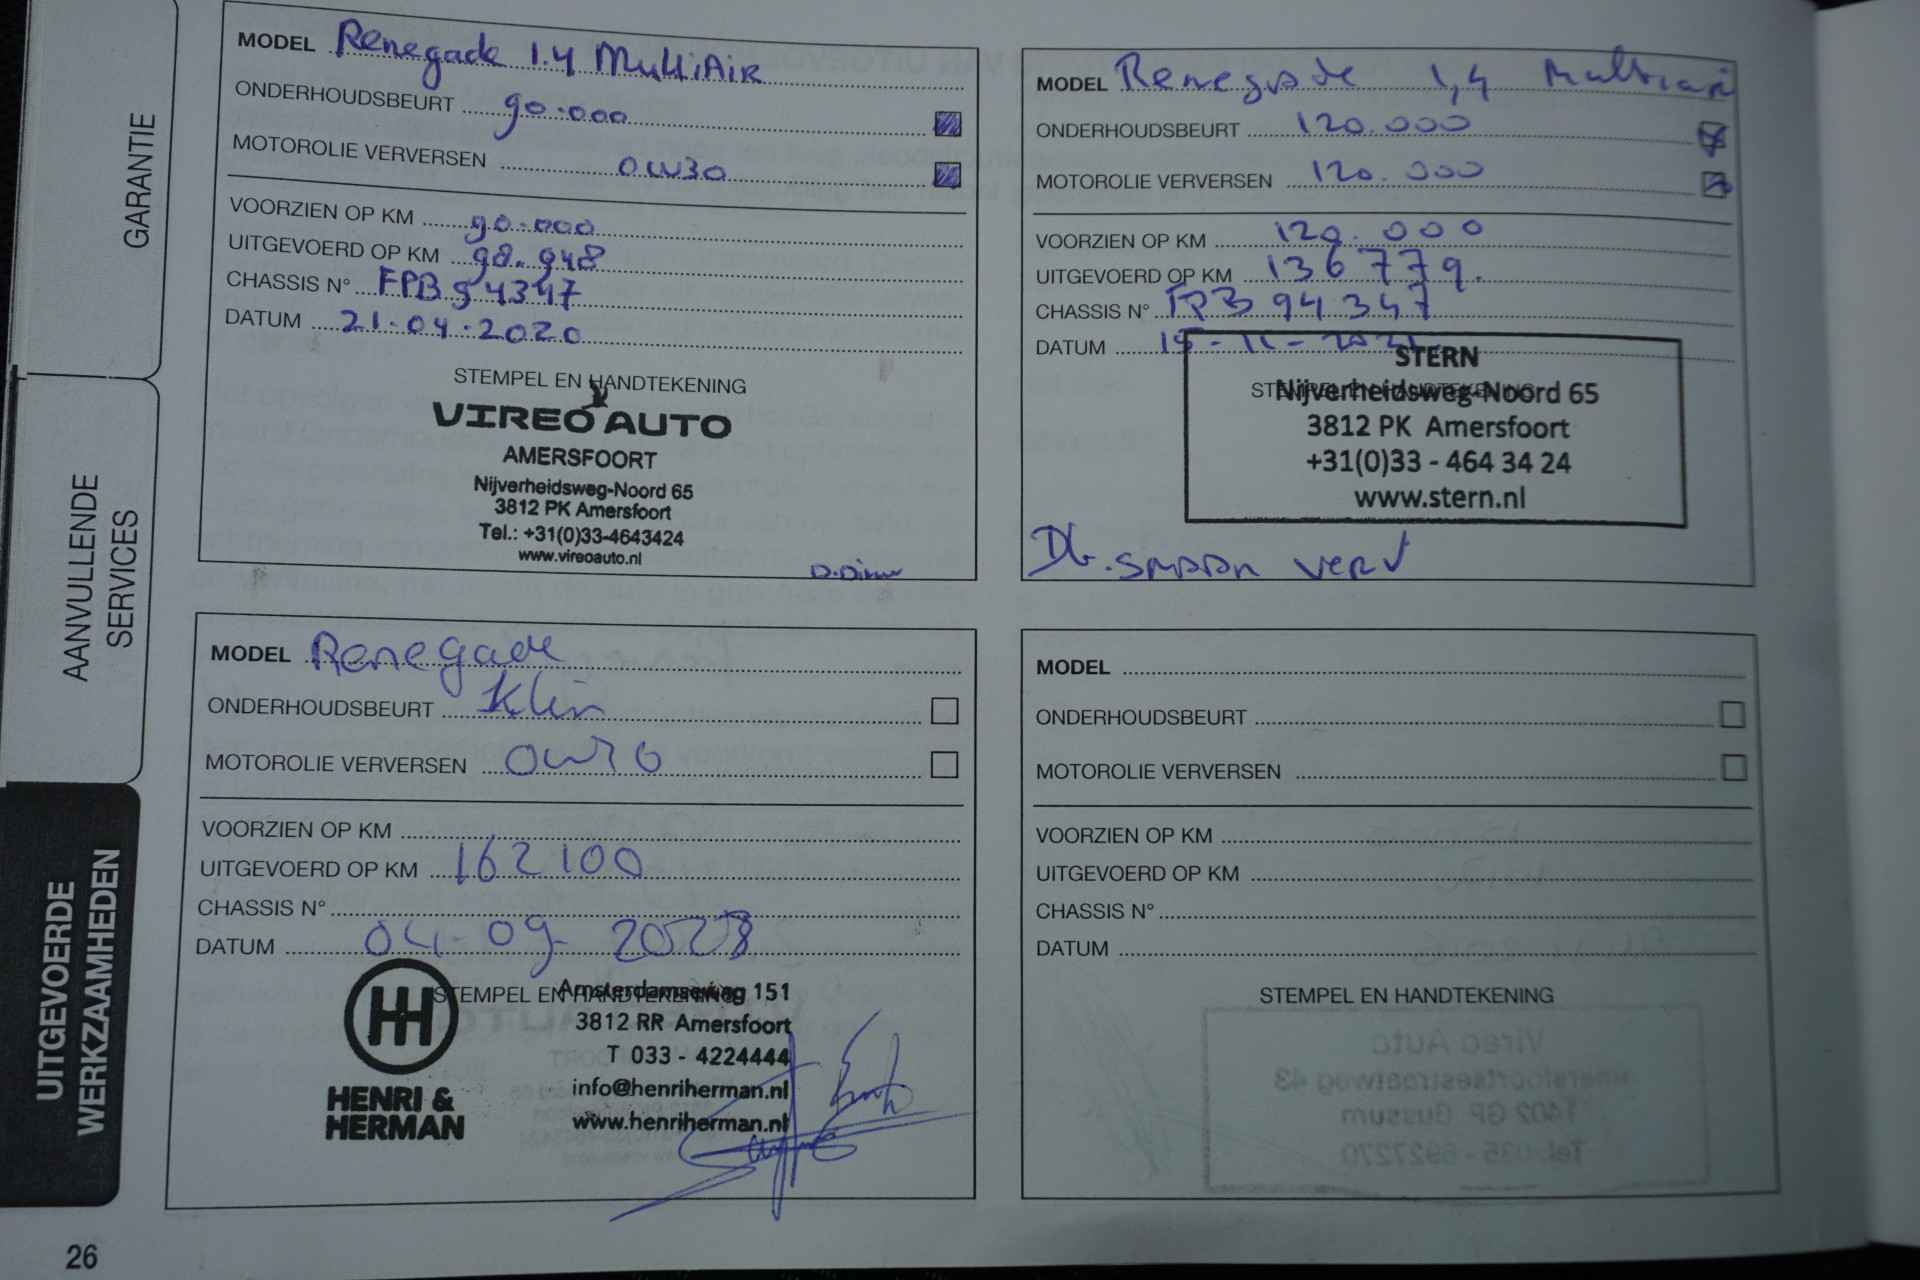 GARANTIE
AANVULLENDE
SERVICES
UITGEVOERDE
WERKZAAMHEDEN
MODEL Renegade 1.4 MultiAir
ONDERHOUDSBEURT 90.000
MOTOROLIE VERVERSEN 0W30
VOORZIEN OP KM 90.000
UITGEVOERD OP KM 98.948
CHASSIS N° FPB94347
DATUM 21.04.2020
STEMPEL EN HANDTEKENING
VIREO AUTO
AMERSFOORT
Nijverheidsweg-Noord 65
3812 PK Amersfoort
Tel.: +31(0)33-4643424
www.vireoauto.nl
MODEL Renegade 1,4 Multiair
ONDERHOUDSBEURT 120.000
MOTOROLIE VERVERSEN 120.000
VOORZIEN OP KM 120.000
UITGEVOERD OP KM 136779.
CHASSIS N° FPB 94347
DATUM
STEMPEL EN HANDTEKENING
STERN
Nijverheidsweg-Noord 65
3812 PK Amersfoort
+31(0)33 - 464 34 24
www.stern.nl
MODEL Renegade
ONDERHOUDSBEURT Klein
MOTOROLIE VERVERSEN 0W30
VOORZIEN OP KM
UITGEVOERD OP KM 162100
CHASSIS N°
DATUM 04-09-
STEMPEL EN HANDTEKENING
HENRI &
HERMAN
Amsterdamseweg 151
3812 RR Amersfoort
T 033 - 4224444
info@henriherman.nl
www.henriherman.nl
MODEL
ONDERHOUDSBEURT
MOTOROLIE VERVERSEN
VOORZIEN OP KM
UITGEVOERD OP KM
CHASSIS N°
DATUM
STEMPEL EN HANDTEKENING
26